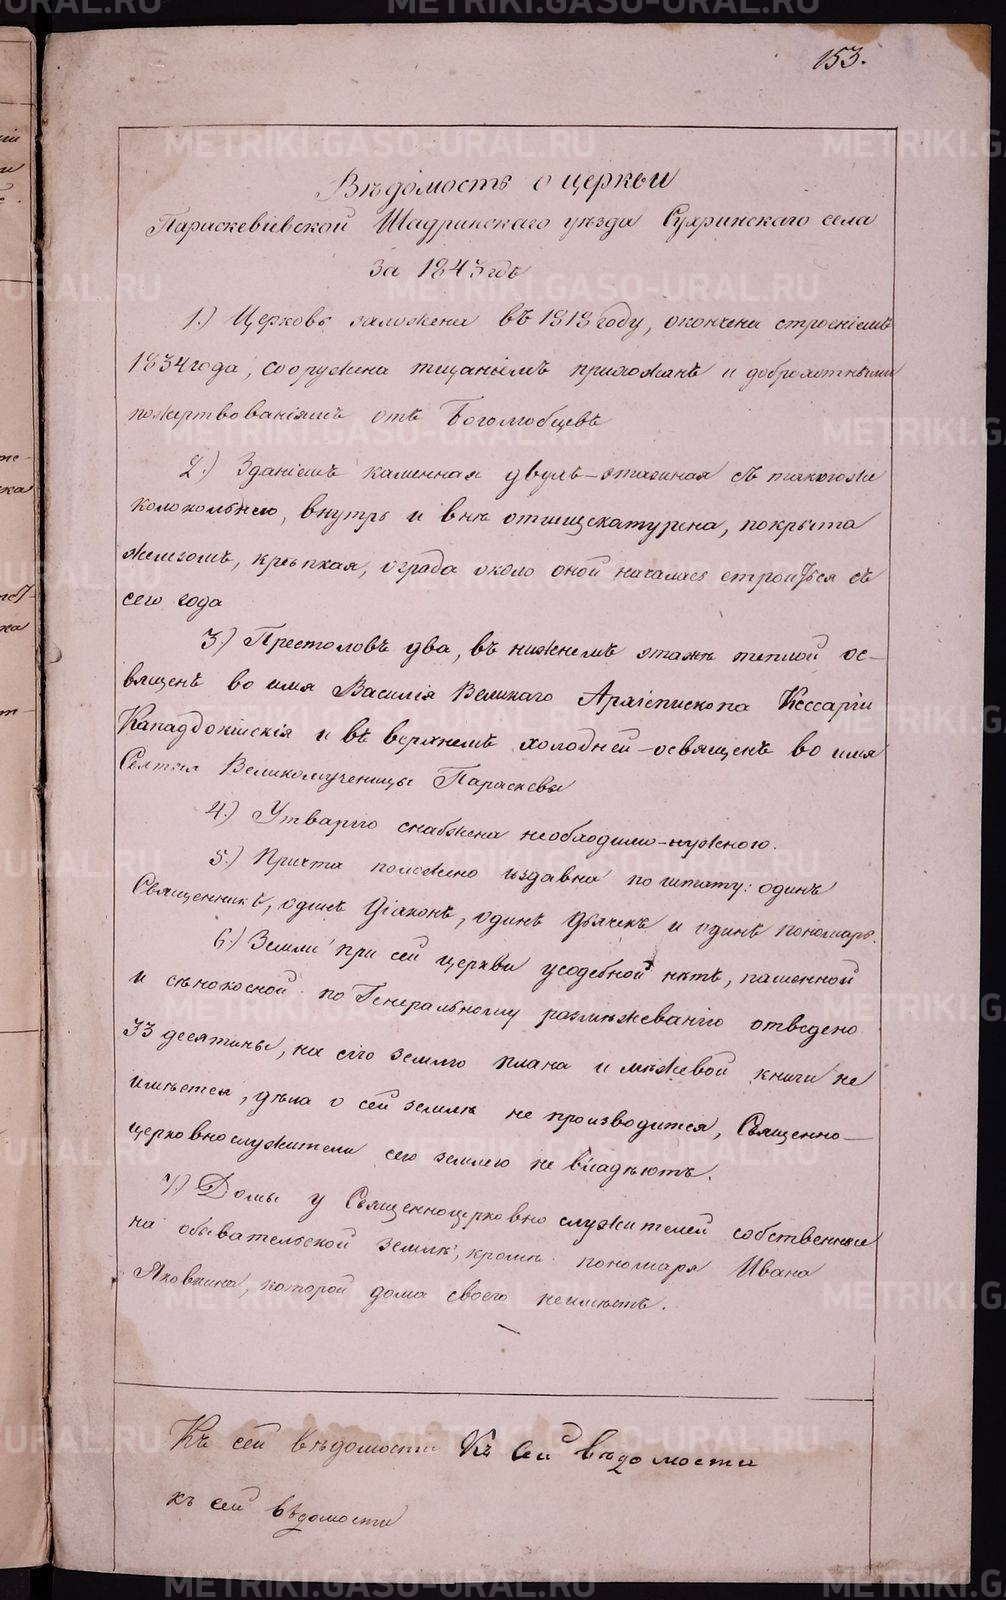 153.
Вѣдомость о церкви
Параскевіевской Шадринскаго уѣзда Сухринскаго села
за 1843 годъ
1.) Церковь заложена въ 1818 году, окончена строеніемъ
1834 года, сооружена тщаніемъ прихожанъ и доброхотными
пожертвованіями отъ Боголюбцевъ
2.) Зданіемъ каменная двухъ-этажная съ таковою же
колокольнею, внутрь и внѣ отщщекатурена, покрыта
желѣзомъ, крѣпкая, ограда около оной началась строиться съ
сего года
3.) Престоловъ два, въ нижнемъ этажѣ теплой ос-
вященъ во имя Василія Великаго Архіепископа Кессаріи
Кападдокійскія и въ верхнемъ холодней-освященъ во имя
Святыя Великомученицы Параскевы
4.) Утварію снабжена необходимо-нужною.
5.) Причта положено издавна по штату: одинъ
Священникъ, одинъ Діаконъ, одинъ дьячекъ и одинъ пономарь.
6.) Земли при сей церкви усадебной нѣтъ, пашенной
и сѣнокосной по Генеральному размѣжеванію отведено
33 десятины, на сію землю плана и мѣжевой книги не
имѣется, дѣла о сей землѣ не производится, Священно-
церковнослужители сею землею не владѣютъ.
7.) Домы у Священноцерковно служителей собственные
на обывательской землѣ, кромѣ пономаря Ивана
Яковкина, которой дома своего неимѣетъ.
Къ сей вѣдомости Къ сей вѣдомости
къ сей вѣдомости
METRIKI.GASO-URAL.RU